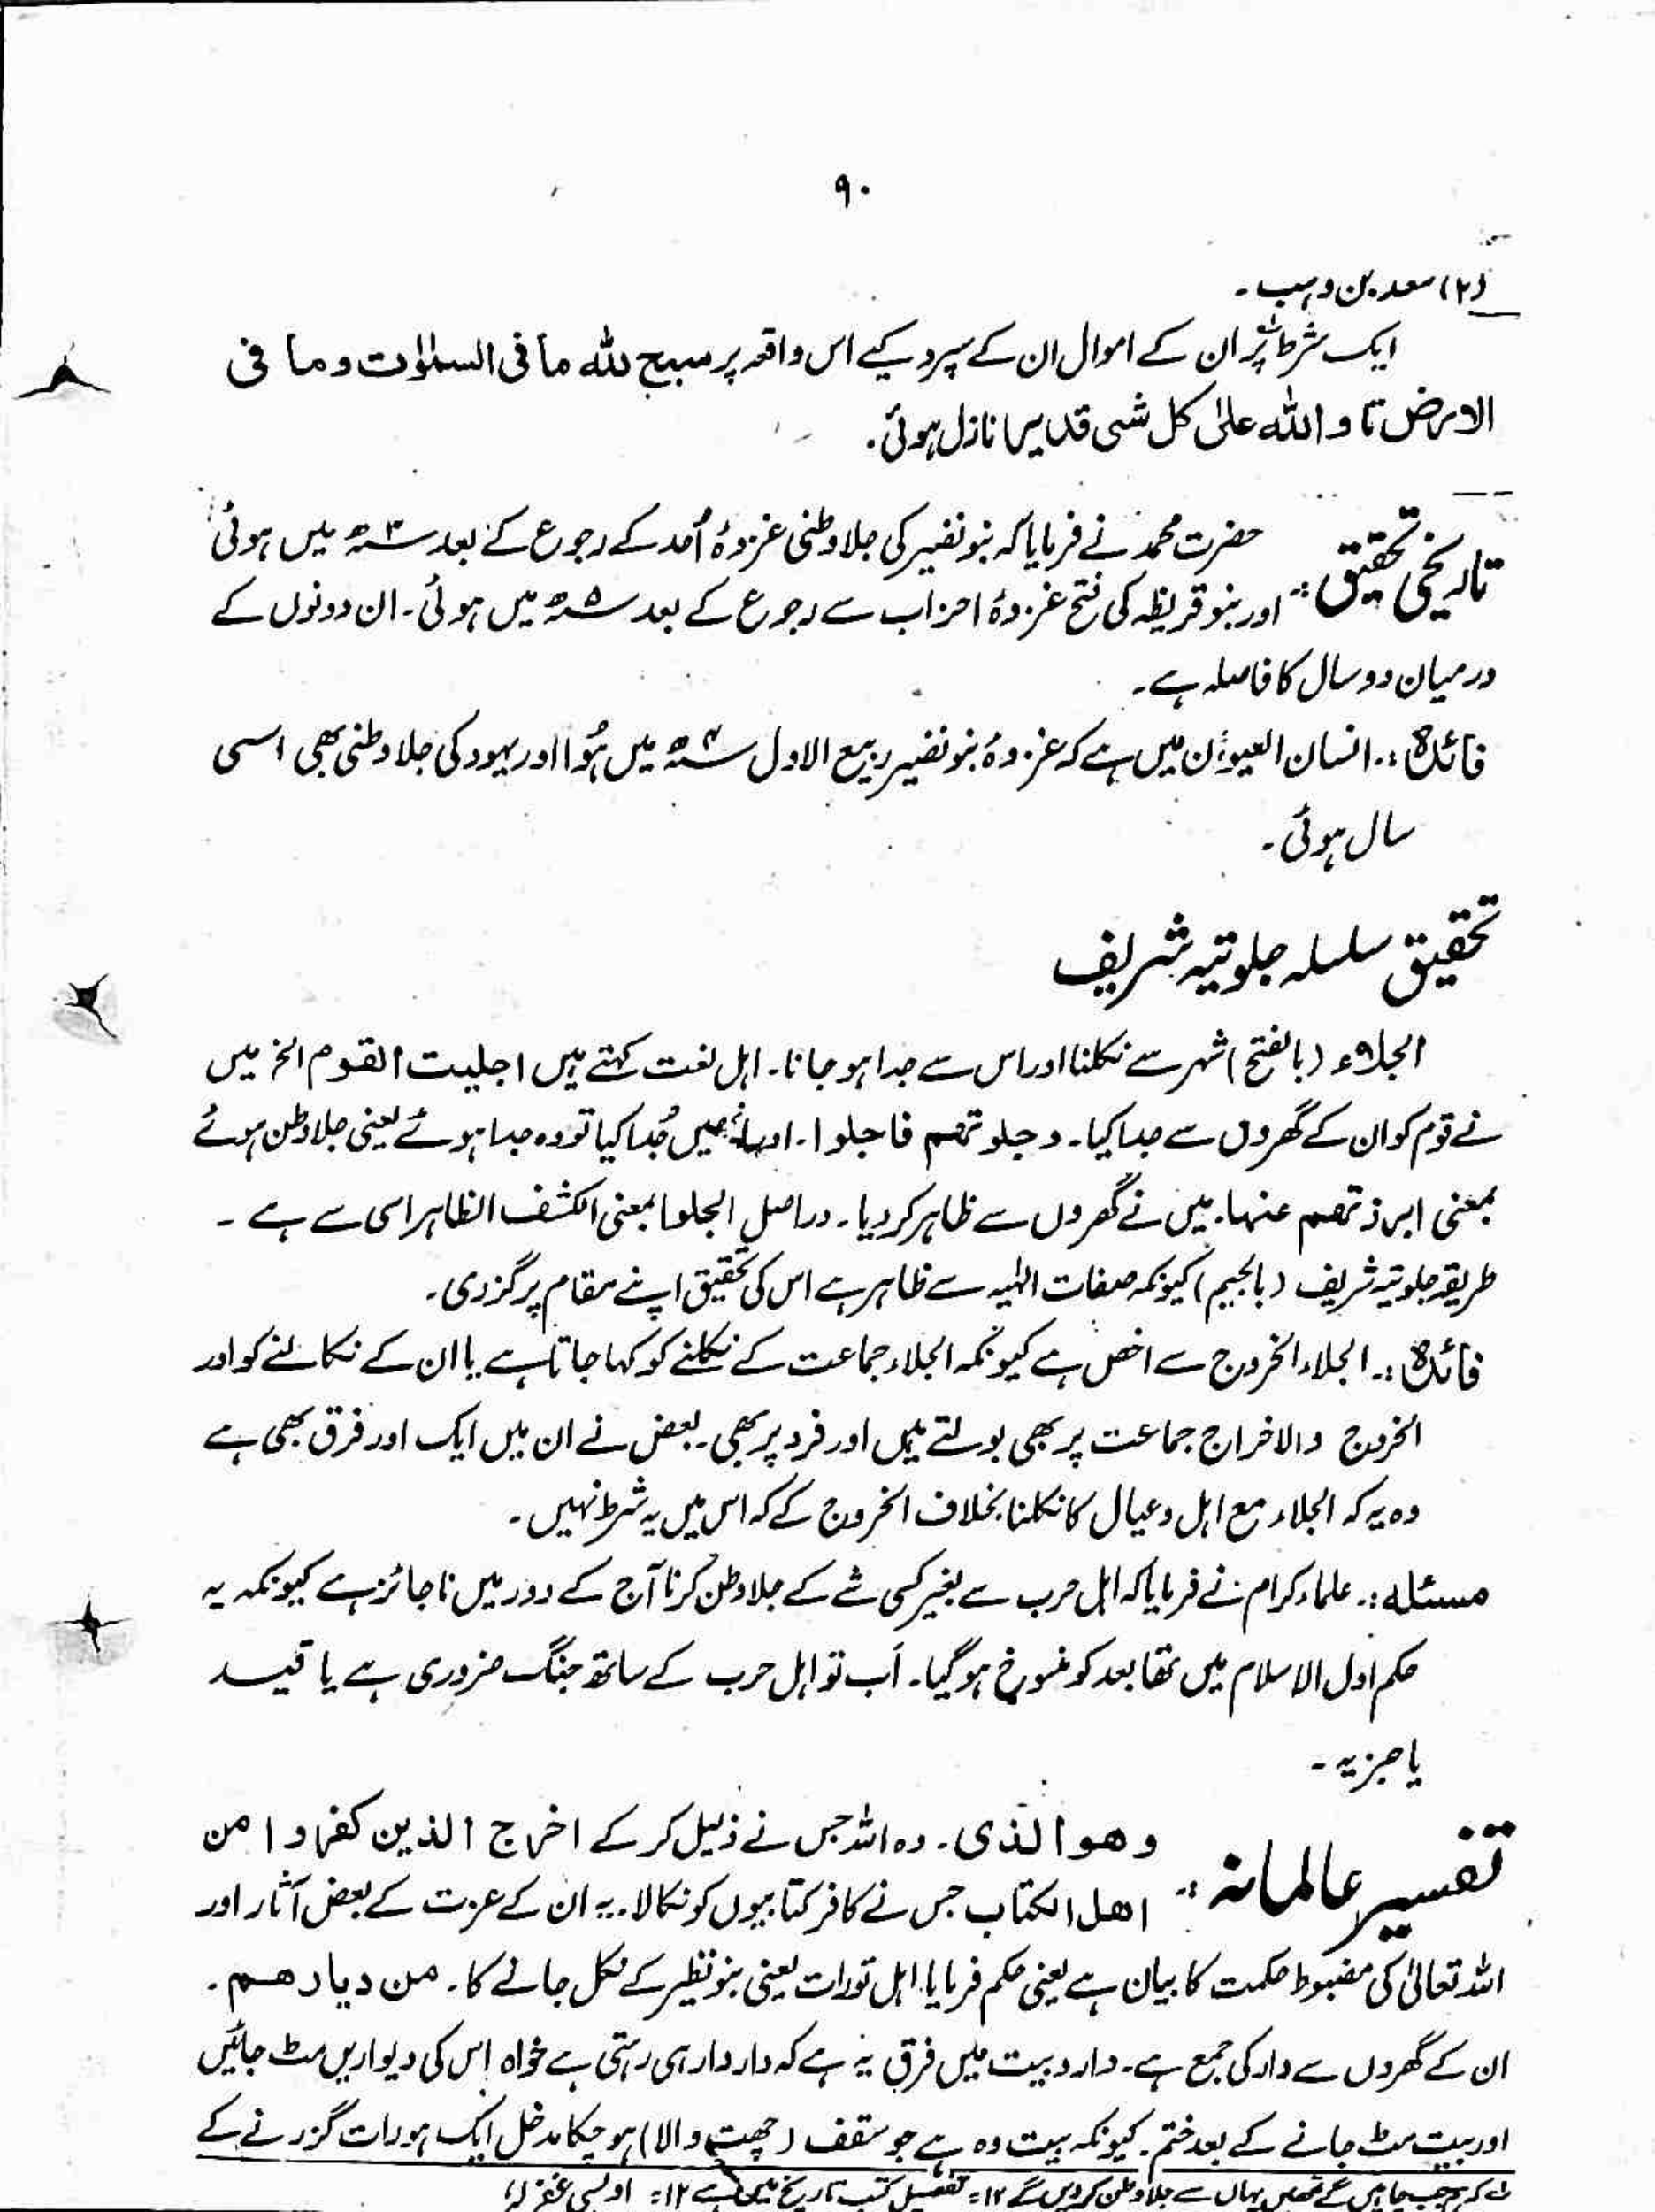 ۹۰
(۲) سعد بن وہب ۔
ایک شرط پر ان کے اموال ان کے سپرد کیے اس واقعہ پر سبح للہ ما فی السمٰوٰت وما فی
الارض تا واللہ علیٰ کل شی قدیر نازل ہوئی ۔
تاریخی تحقیق :- حضرت محمد نے فرمایا کہ بنو نضیر کی جلاوطنی غزوۂ اُحد کے رجوع کے بعد ۳ھ میں ہوئی
اور بنو قریظہ کی فتح غزوۂ احزاب سے رجوع کے بعد ۵ھ میں ہوئی ۔ ان دونوں کے
درمیان دو سال کا فاصلہ ہے ۔
فائدہ :- انسان العیون میں ہے کہ غزوۂ بنو نضیر ربیع الاول ۴ھ میں ہُوا اور یہود کی جلاوطنی بھی اسی
سال ہوئی ۔
تحقیق سلسلہ جلوتیہ شریف
الجلاء (بالفتح) شہر سے نکلنا اور اس سے جدا ہو جانا ۔ اہل لغت کہتے ہیں اجلیت القوم الخ میں
نے قوم کو ان کے گھروں سے جدا کیا ۔ وجلوتھم فاجلوا ۔ اور انہیں جُدا کیا تو وہ جدا ہوئے یعنی جلاوطن ہوئے
بمعنی ابرزتھم عنہا ۔ میں نے گھروں سے ظاہر کر دیا ۔ دراصل الجلو بمعنی الکشف الظاہر اسی سے ہے ۔
طریقہ جلوتیہ شریف (بالجیم) کیونکہ صفات الٰہیہ سے ظاہر ہے اس کی تحقیق اپنے مقام پر گزری ۔
فائدہ :- الجلاء الخروج سے اخص ہے کیونکہ الجلاء جماعت کے نکلنے کو کہا جاتا ہے یا ان کے نکالنے کو اور
الخروج والاخراج جماعت پر بھی بولتے ہیں اور فرد پر بھی ۔ بعض نے ان میں ایک اور فرق بھی ہے
وہ یہ کہ الجلاء مع اہل وعیال کا نکلنا بخلاف الخروج کے کہ اس میں یہ شرط نہیں ۔
مسئلہ :- علماء کرام نے فرمایا کہ اہل حرب سے بغیر کسی شے کے جلاوطن کرنا آج کے دور میں ناجائز ہے کیونکہ یہ
حکم اول الاسلام میں تھا بعد کو منسوخ ہو گیا ۔ اَب تو اہل حرب کے ساتھ جنگ ضروری ہے یا قید
یا جزیہ ۔
تفسیر عالمانہ :- وھو الذی ۔ وہ اللہ جس نے ذلیل کر کے اخرج الذین کفروا من
اھل الکتاب جس نے کافر کتابیوں کو نکالا ۔ یہ ان کے عزت کے بعض آثار اور
اللہ تعالیٰ کی مضبوط حکمت کا بیان ہے یعنی حکم فرمایا اہل تورات یعنی بنو نظیر کے نکل جانے کا ۔ من دیارھم ۔
ان کے گھروں سے دار کی جمع ہے ۔ دار و بیت میں فرق یہ ہے کہ دار دار ہی رہتی ہے خواہ اس کی دیواریں مٹ جائیں
اور بیت مٹ جانے کے بعد ختم ۔ کیونکہ بیت وہ ہے جو سقف (چھت والا) ہو جس کا مدخل ایک ہو رات گزرنے کے
کہ جب چاہیں گے تمہیں یہاں سے جلاوطن کر دیں گے ۱۲= تفصیل کتب تاریخ میں ہے ۱۲= اویسی غفرلہ